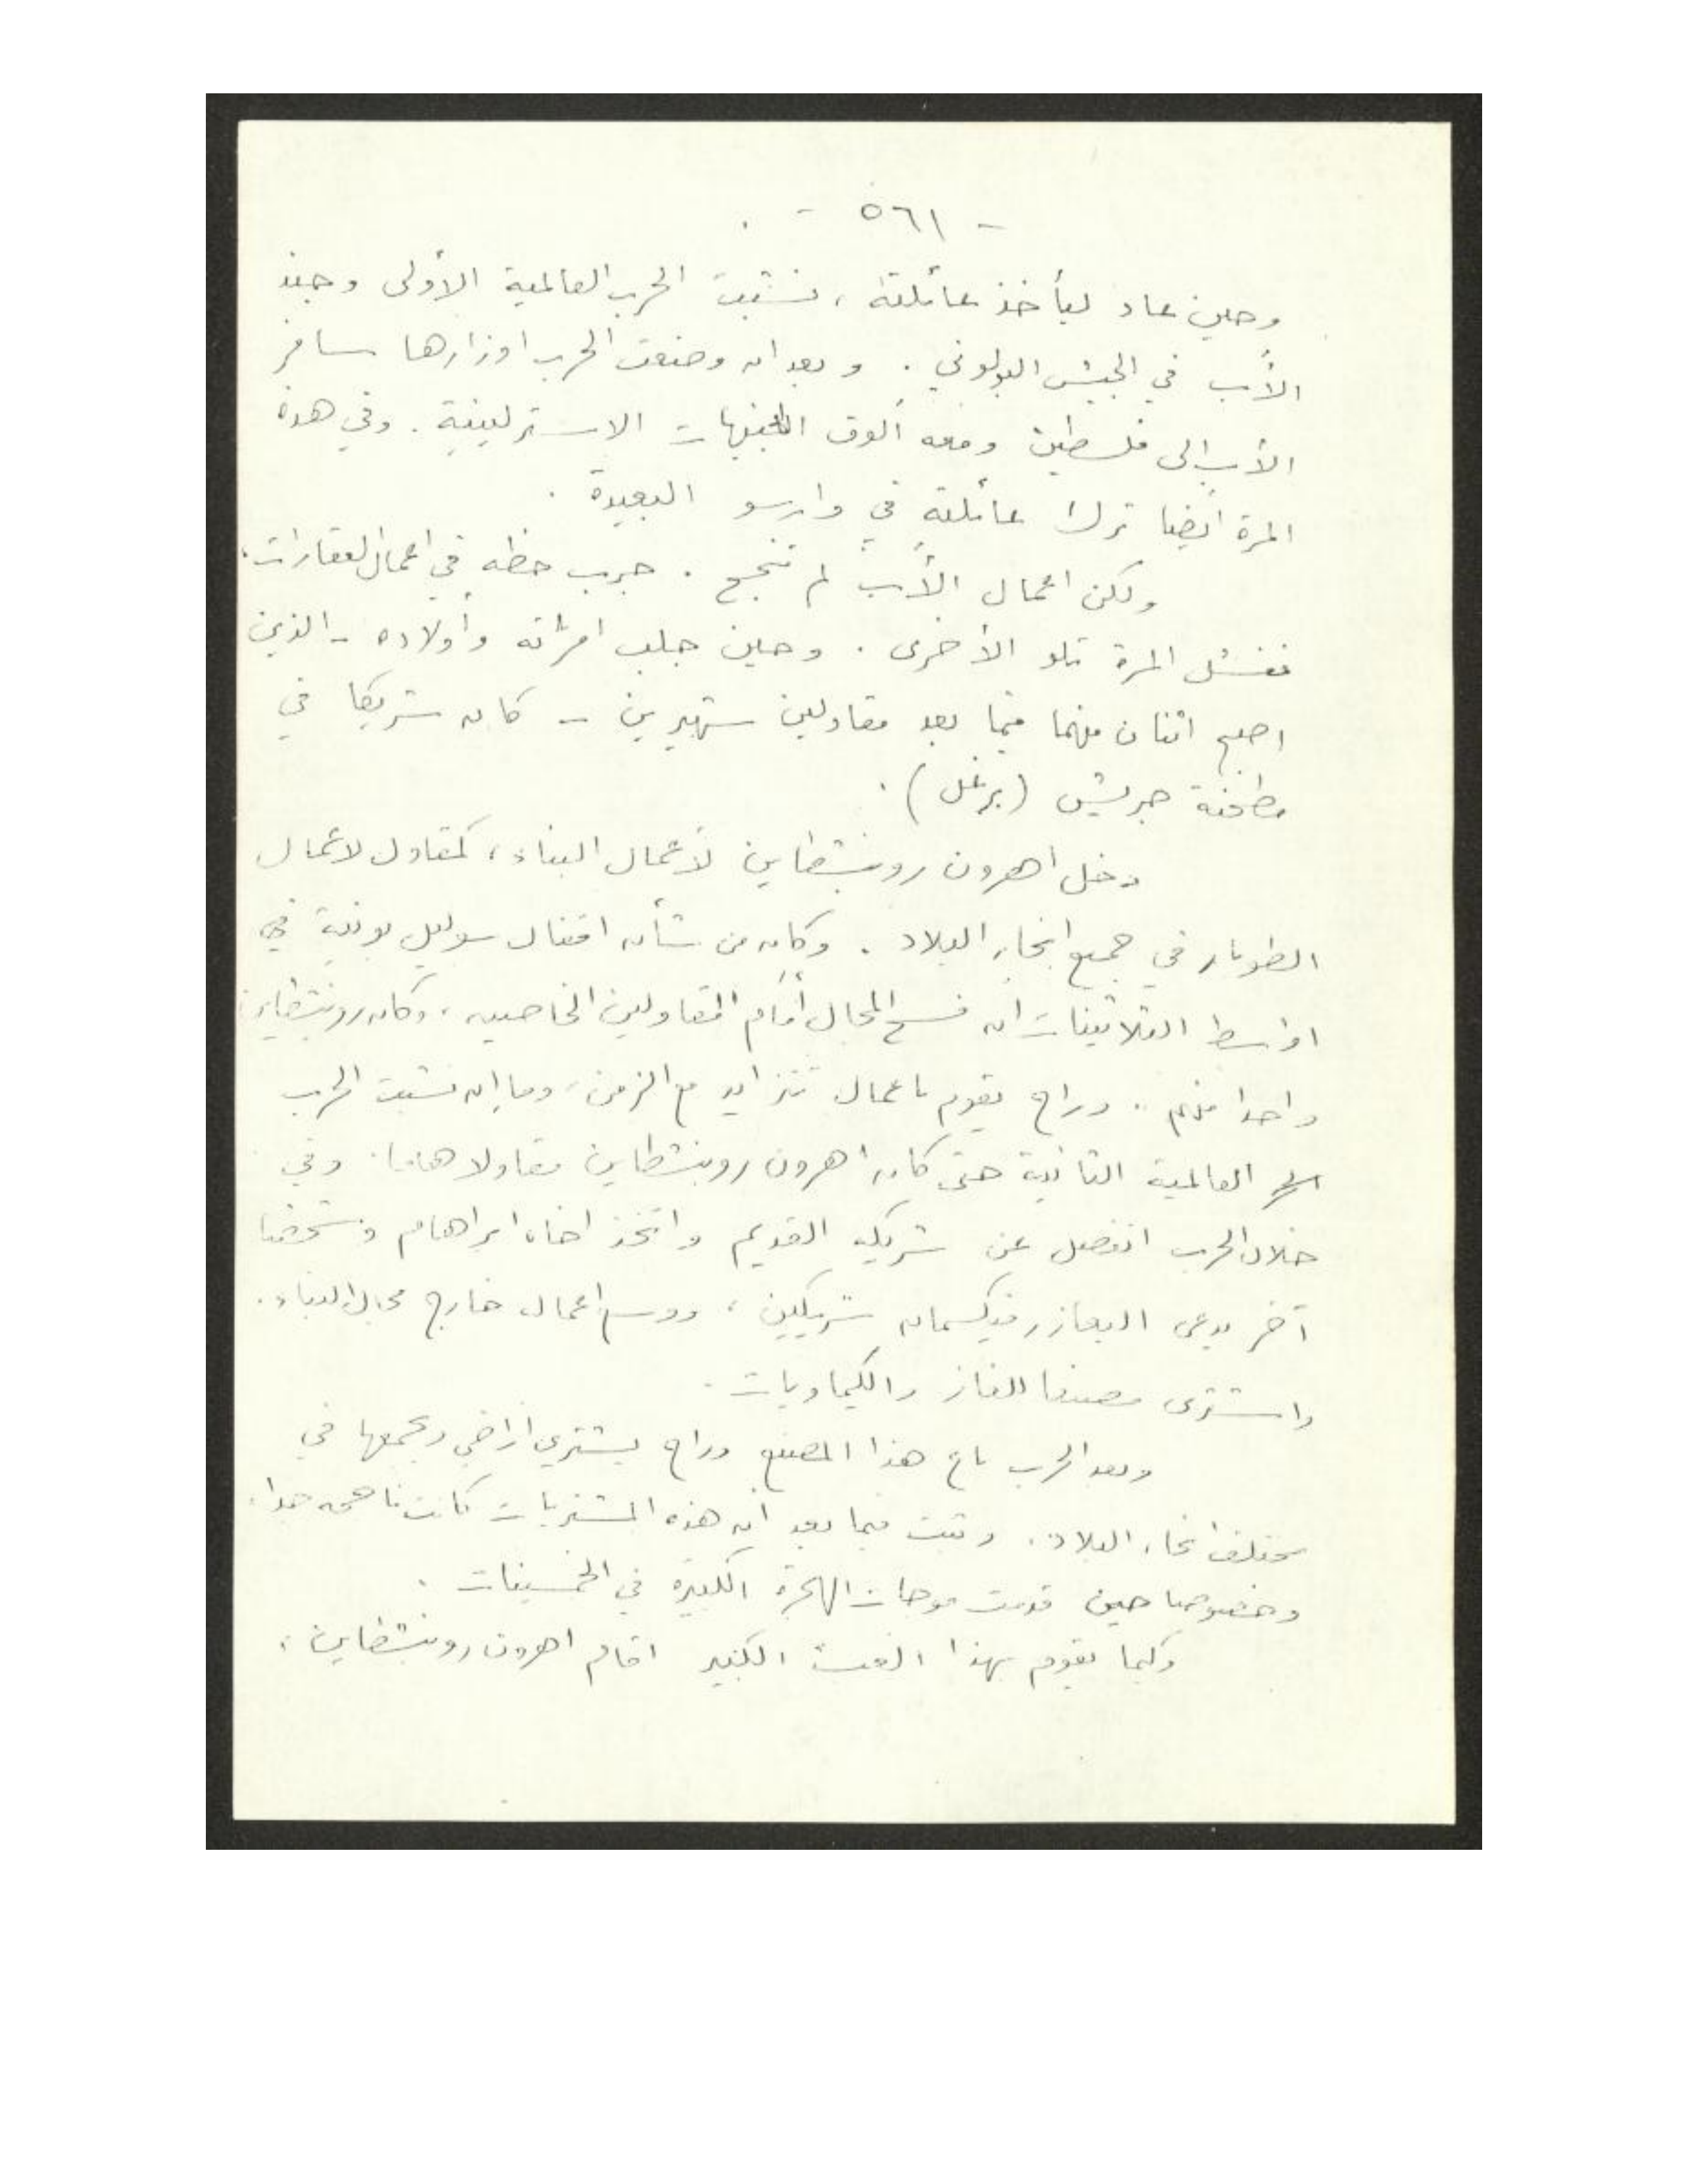 - ٥٦١ - .
وحين عاد ليأخذ عائلته، نشبت الحرب العالمية الأولى وجند
الأب في الجيش البولوني . وبعد ان وضعت الحرب اوزارها سافر
الأب الى فلسطين ومعه ألوف الجنيهات الاسترلينية . وفي هذه
المرة أيضا ترك عائلته في وارسو البعيدة .
ولكن اعمال الأب لم تنجح . جرب حظه في اعمال العقارات،
ففشل المرة تلو الأخرى . وحين جلب امرأته وأولاده - الذين
اصبح اثنان منهما فيما بعد مقاولين شهيرين - كان شريكا في
مطحنة جريش (برغل) .
دخل اهرون روبنشطاين لأعمال البناء، كمقاول لاعمال
الطوبار في جميع انحاء البلاد . وكان من شأن اقفال سوليل بونيه في
اواسط الثلاثينات ان فسح المجال أمام المقاولين الخاصين، وكان روبنشطاين
واحدا منهم . وراح يقوم باعمال تتزايد مع الزمن، وما ان نشبت الحرب
العالمية الثانية حتى كان اهرون روبنشطاين مقاولا هاما . وفي
خلال الحرب انفصل عن شريكه القديم واتخذ اخاه ابراهام وشخصا
آخر يدعى اليعازر فيكسمان شريكين، ووسع اعماله خارج مجال البناء .
واشترى مصنعا للغاز والكيماويات .
وبعد الحرب باع هذا المصنع وراح يشتري اراضي ويجمعها في
مختلف انحاء البلاد . وثبت فيما بعد ان هذه المشتريات كانت ناجحه جدا،
وخصوصا حين قدمت موجات الهجرة الكبيرة في الخمسينات .
وكيما يقوم بهذا العبء الكبير اقام اهرون روبنشطاين،